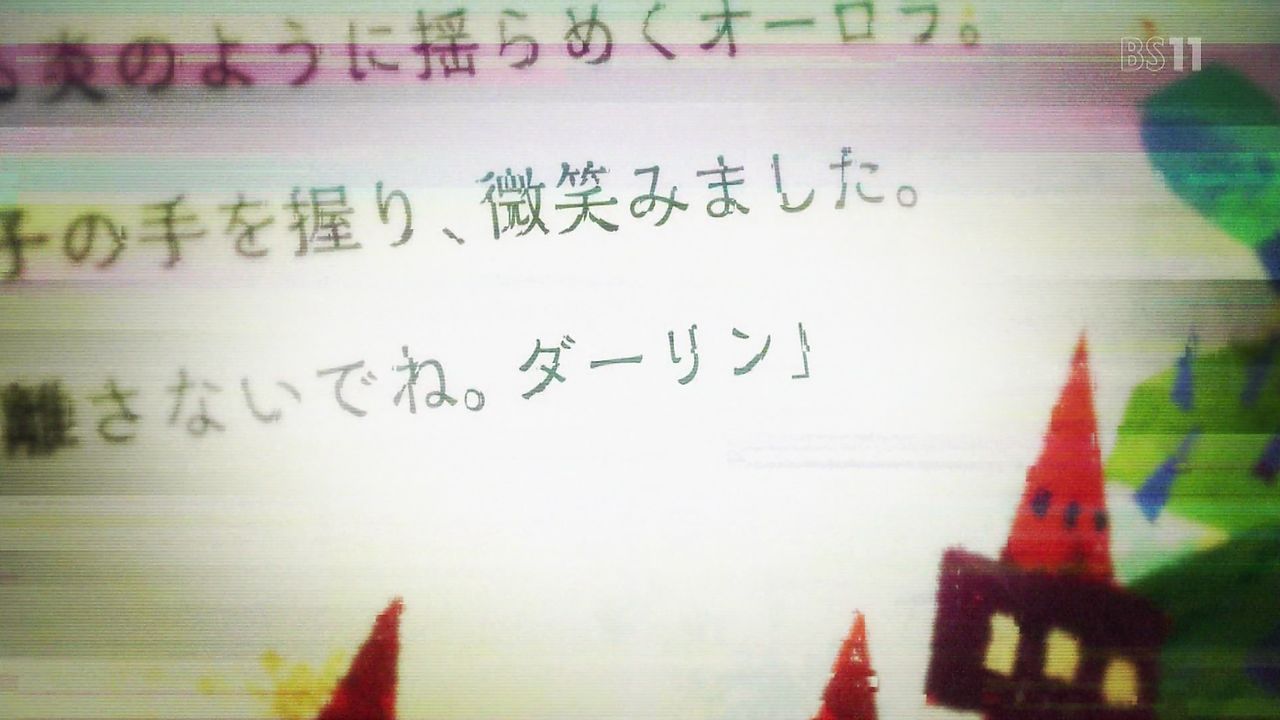 炎のように揺らめくオーロラ。
BS11
子の手を握り、微笑みました。
離さないでね。ダーリン」